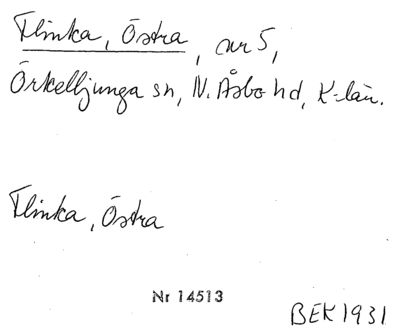 Flinka, Östra, nr 5,
Örkelljunga sn, N. Åsbo hd, K-län.
Flinka, Östra
Nr 14513
BEK 1931